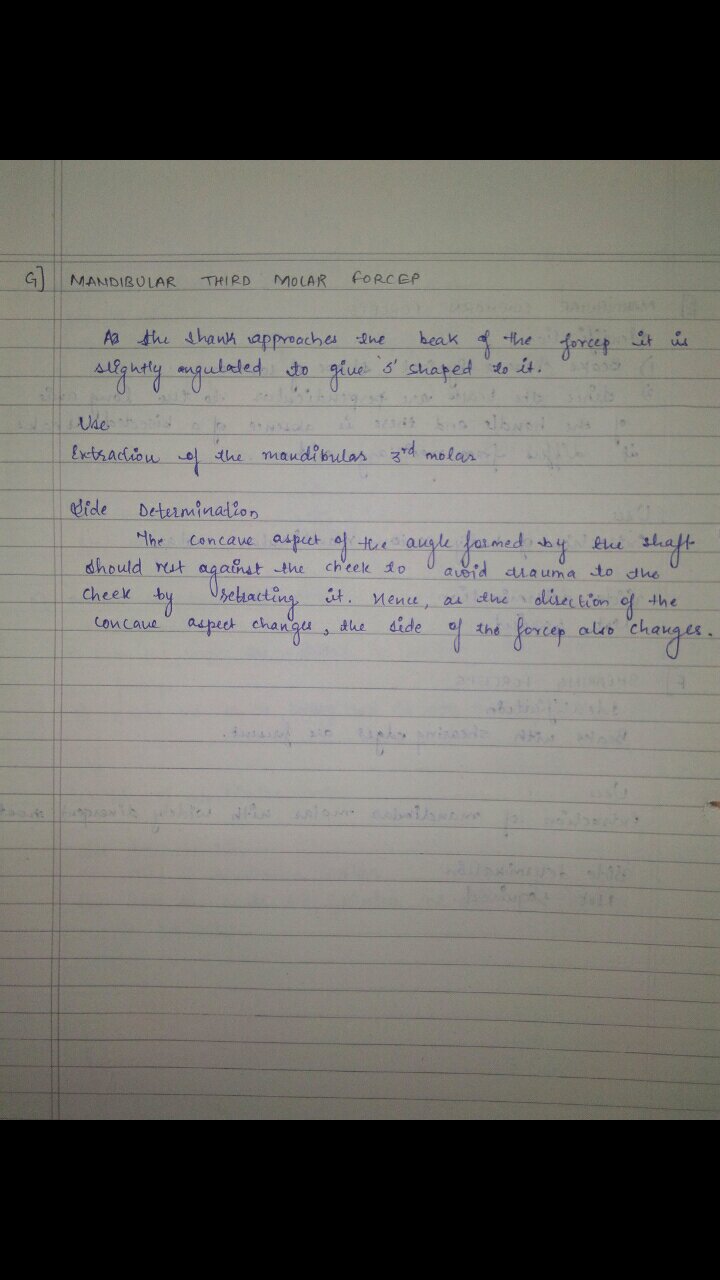 G] MANDIBULAR THIRD MOLAR FORCEP
As the shank approaches the beak of the forcep it is
slightly angulated to give 'S' shaped to it.
Use
Extraction of the mandibular 3rd molar
Side Determination
The concave aspect of the angle formed by the shaft
should rest against the cheek to avoid trauma to the
cheek by retracting it. Hence, as the direction of the
concave aspect changes, the side of the forcep also changes.